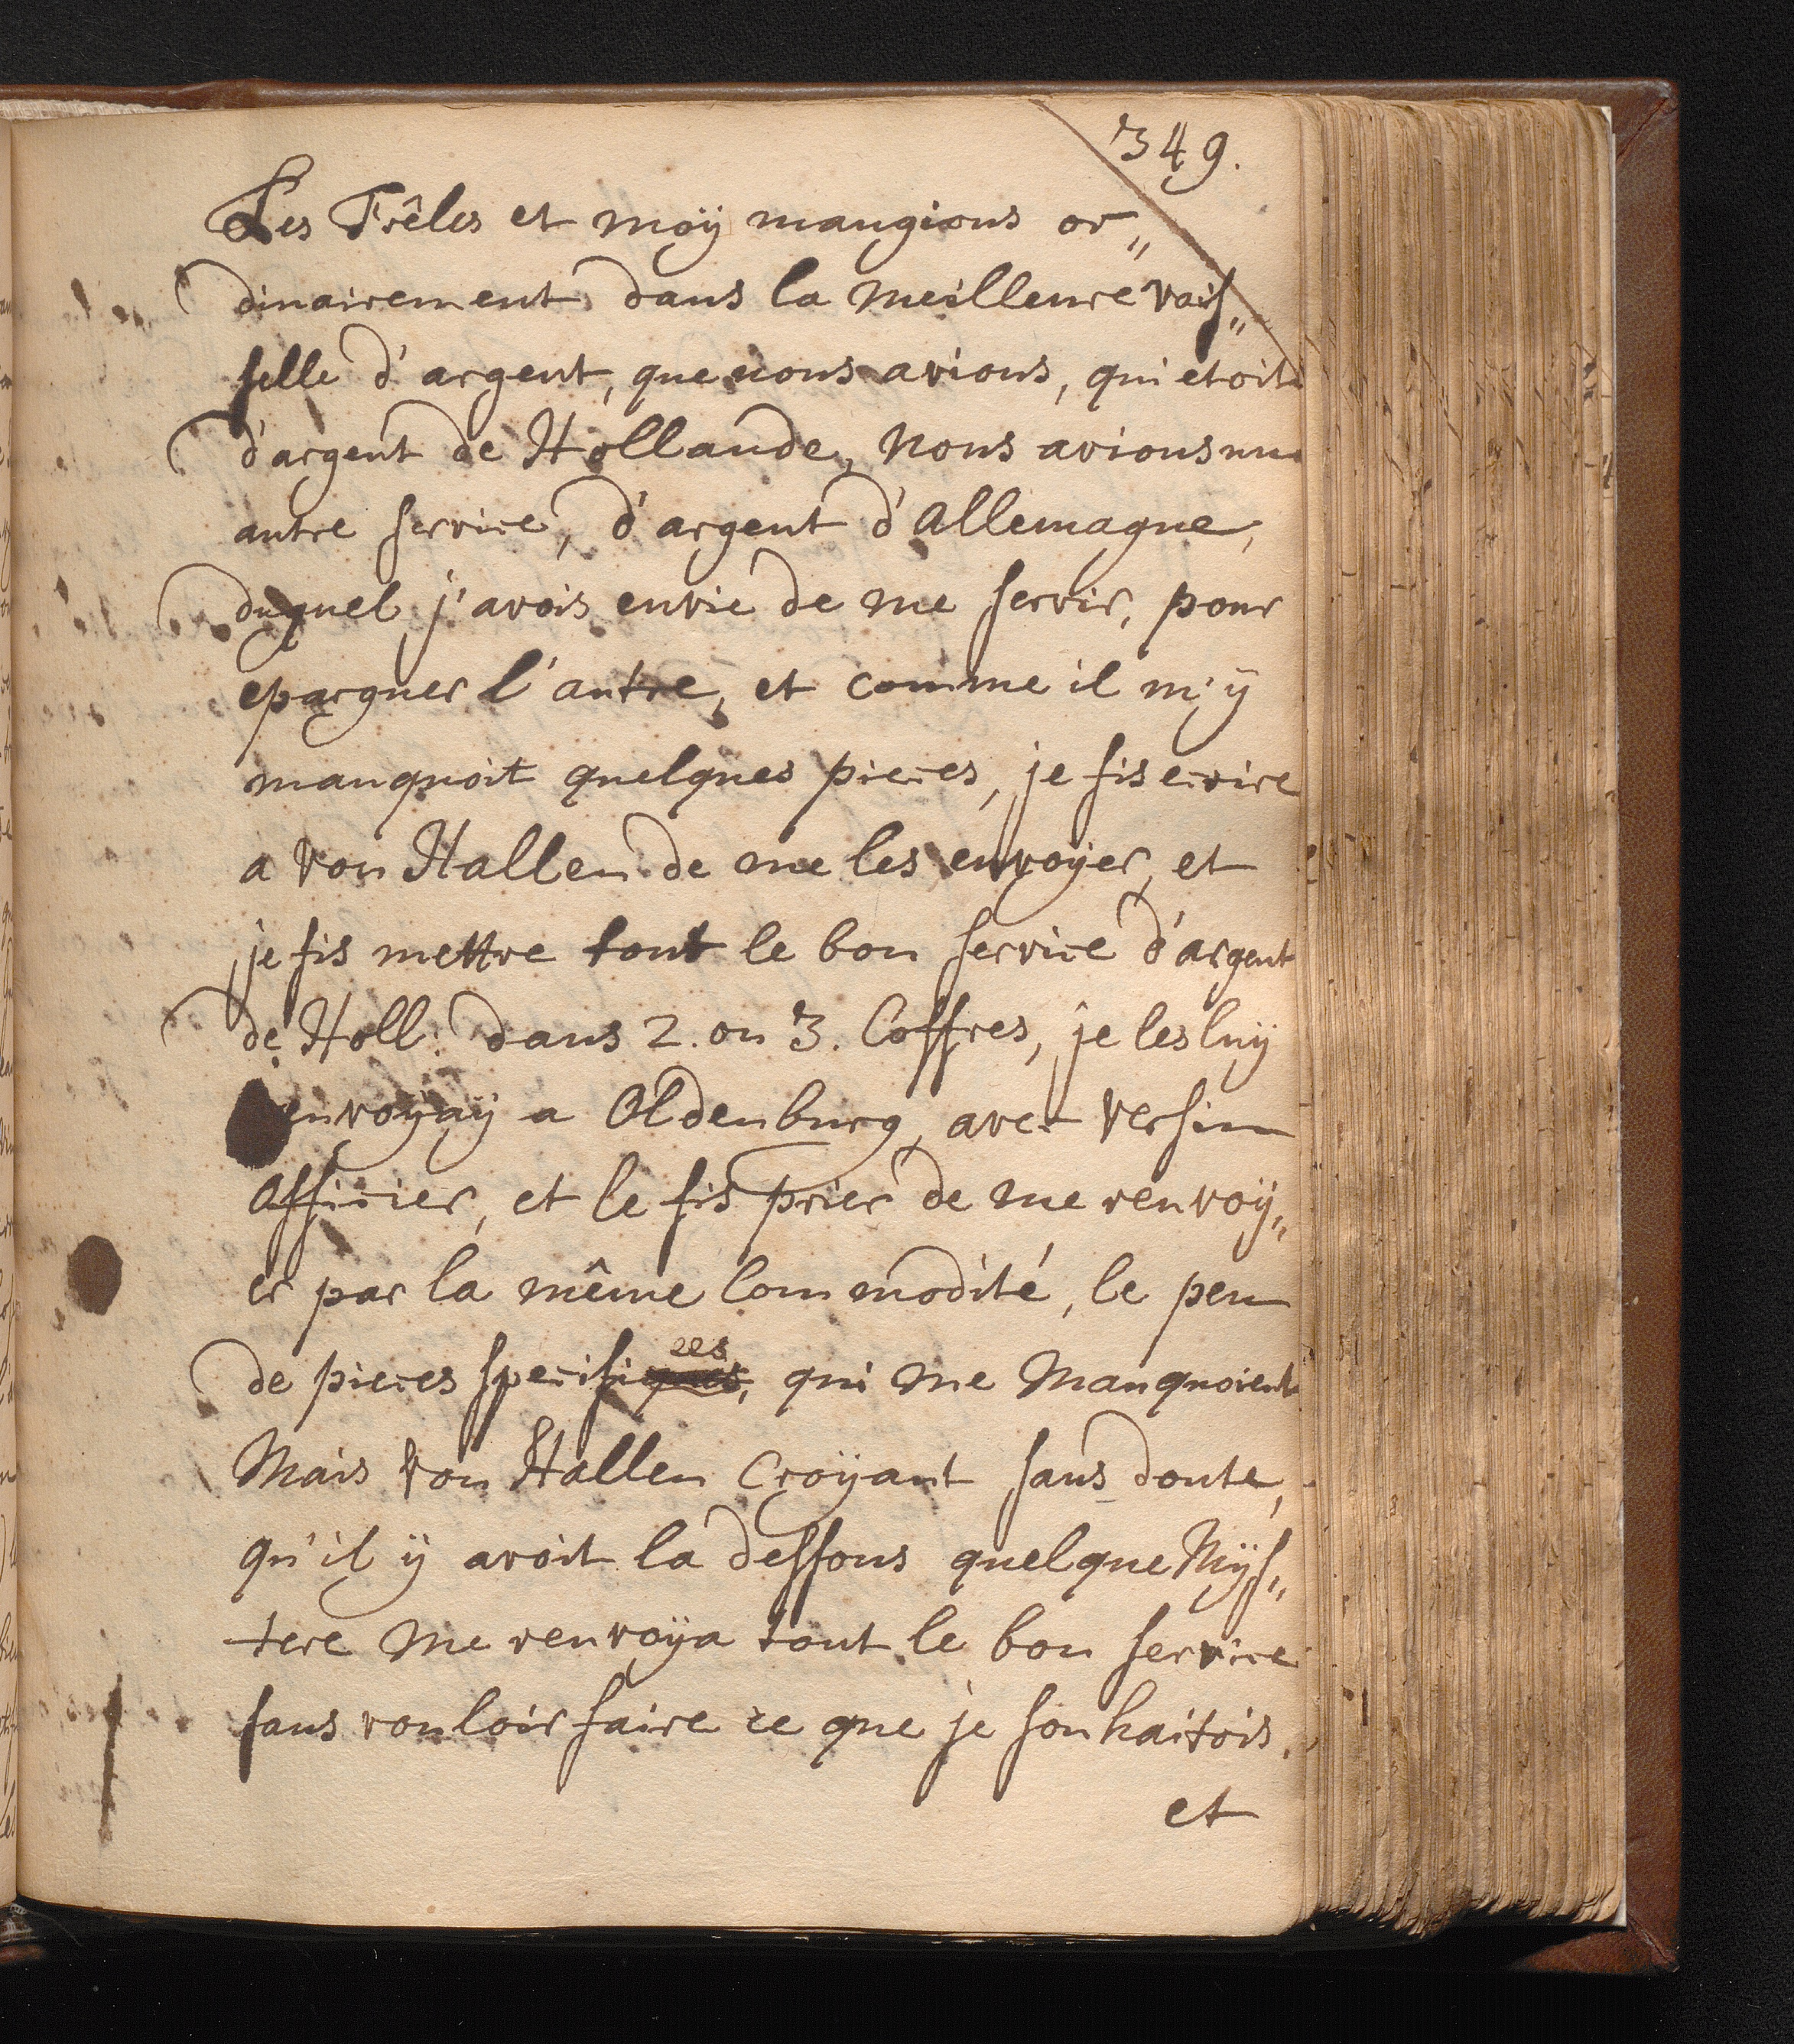 349.
Les Frêles et moÿ mangions or„
dinairement dans la meilleure vais„
selle d'argent, que nous avions, qui etoit
d'argent de Hollande, Nous avions un
autre service, d'argent d'Allemagne,
duquel j'avois envie de me servir, pour
epargner l'autre, et comme il m'ÿ
manquoit quelques pieces, je fis ecrire
a von Hallen de me les envoÿer, et
je fis mettre tout le bon service d'argent
de Holl: dans 2. ou 3. Coffres, je les luÿ
envoÿaÿ a Oldenburg, avec
Officier, et le fis prier de me renvoÿ„
er par la même Commodité, le peu
de pieces specifiées, qui me Manquoient
Mais von Hallen Croÿant sans doute,
qu'il ÿ avoit la dessous quelque Mÿs„
tere me renvoÿa tout le bon service
sans vouloir faire ce que je souhaitois.
et